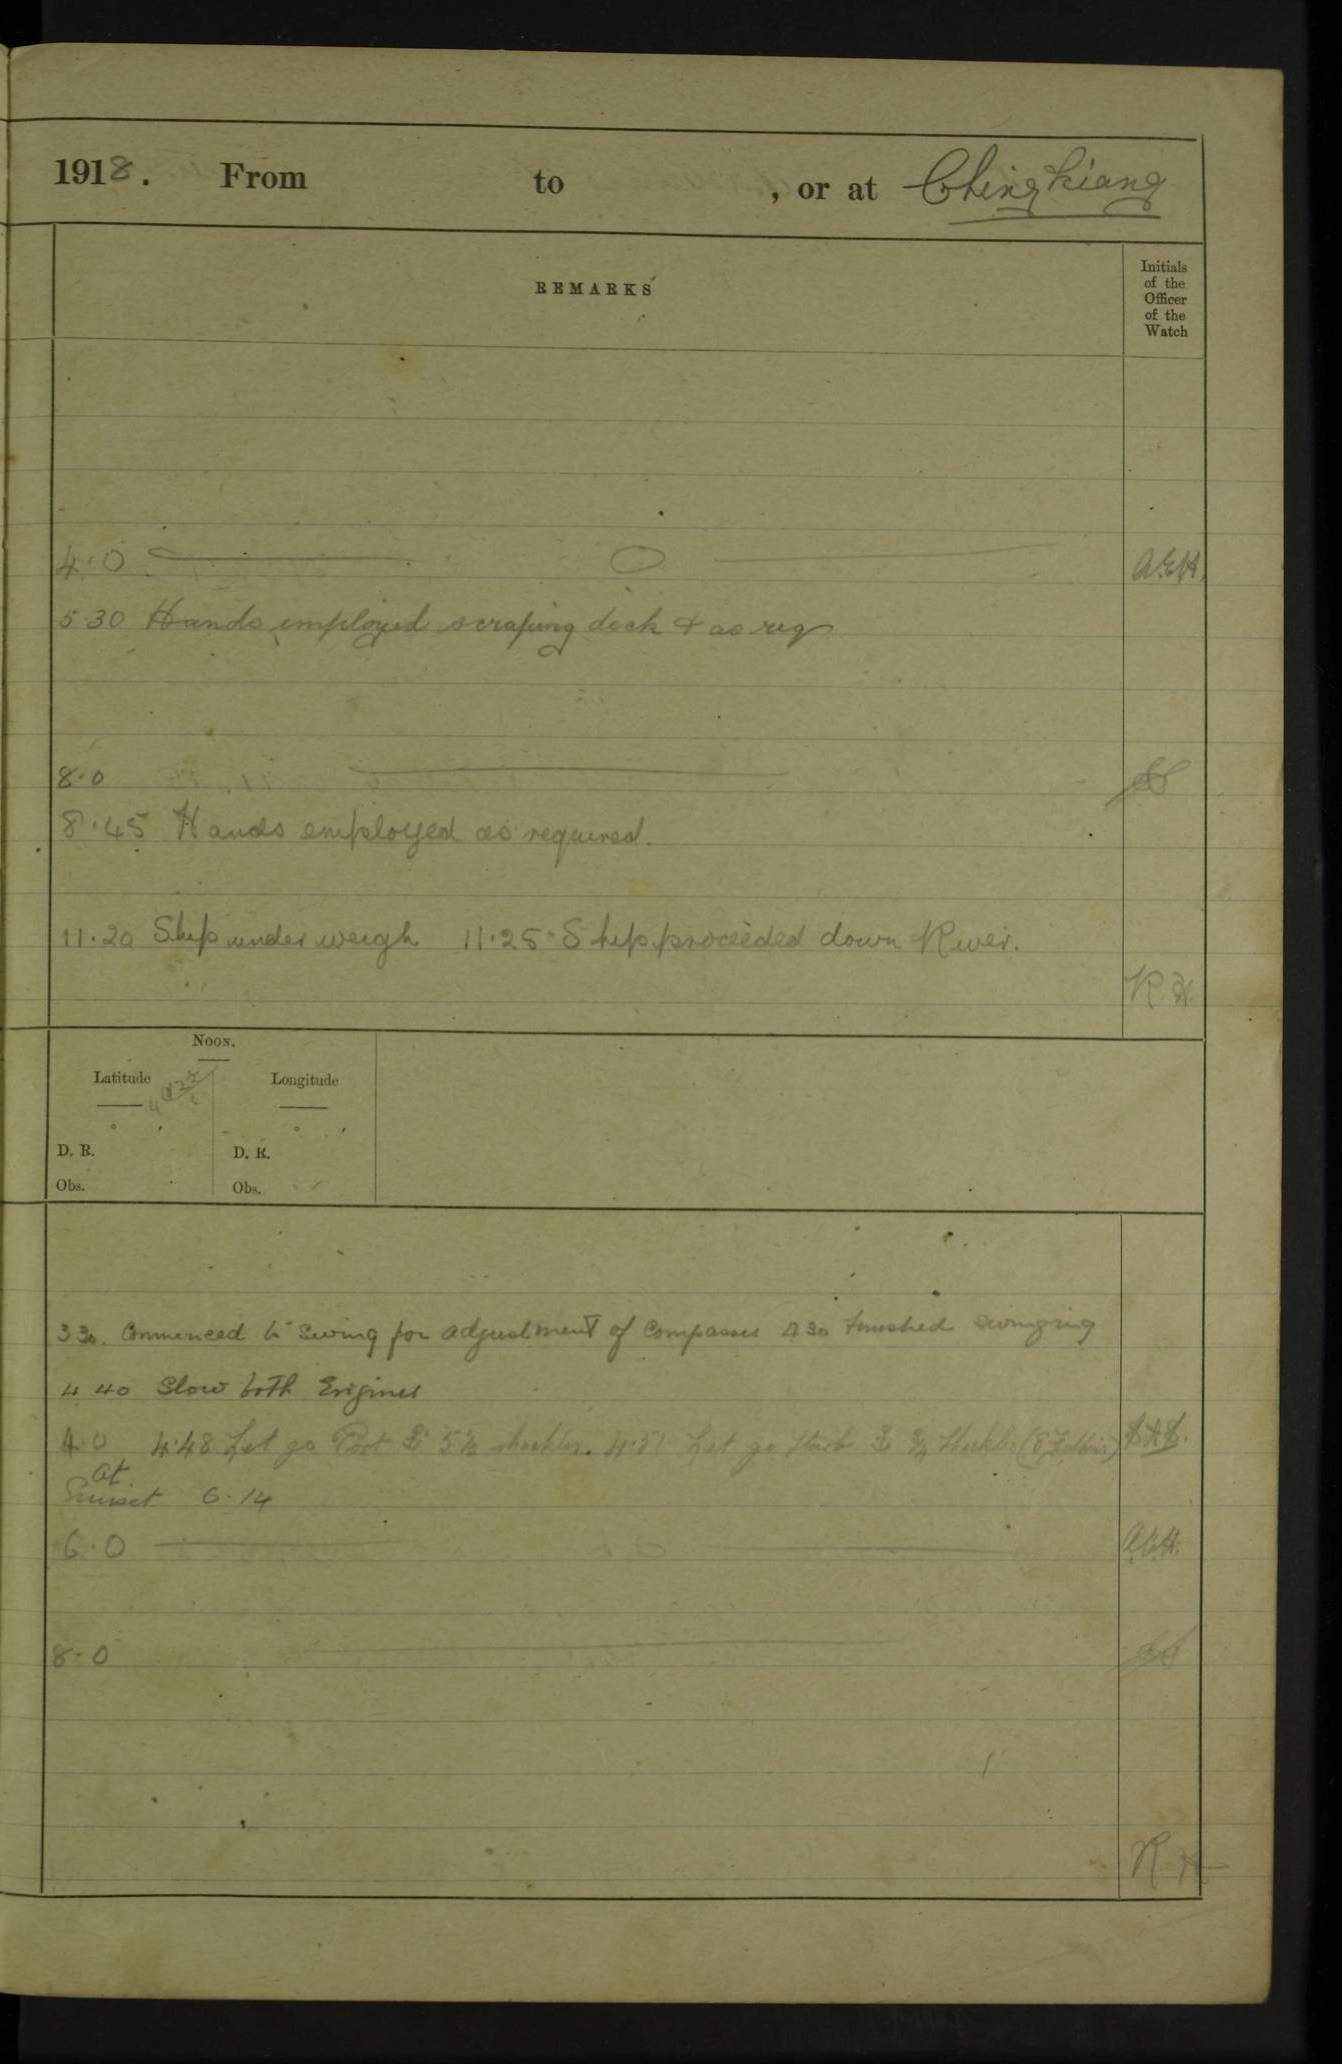 1918. From to , or at Chingkiang
REMARKS
Initials
of the
Officer
of the
Watch
4.0 A.E.H.
5.30 Hands employed scraping deck & as req
8.0
8.45 Hands employed as required.
11.20 Ship under weigh 11.25 Ship proceeded down River.
R.H.
NOON.
Latitude Longitude
D. R. D. R.
Obs. Obs.
3 30. Commenced to swing for adjustment of Compasses 4 30 finished swinging
4 40 Slow both Engines
4.0 4.48 Let go Port 5½ shackles. 4.51 Let go Starb
at
Sunset 6.14
6.0
8.0
R H